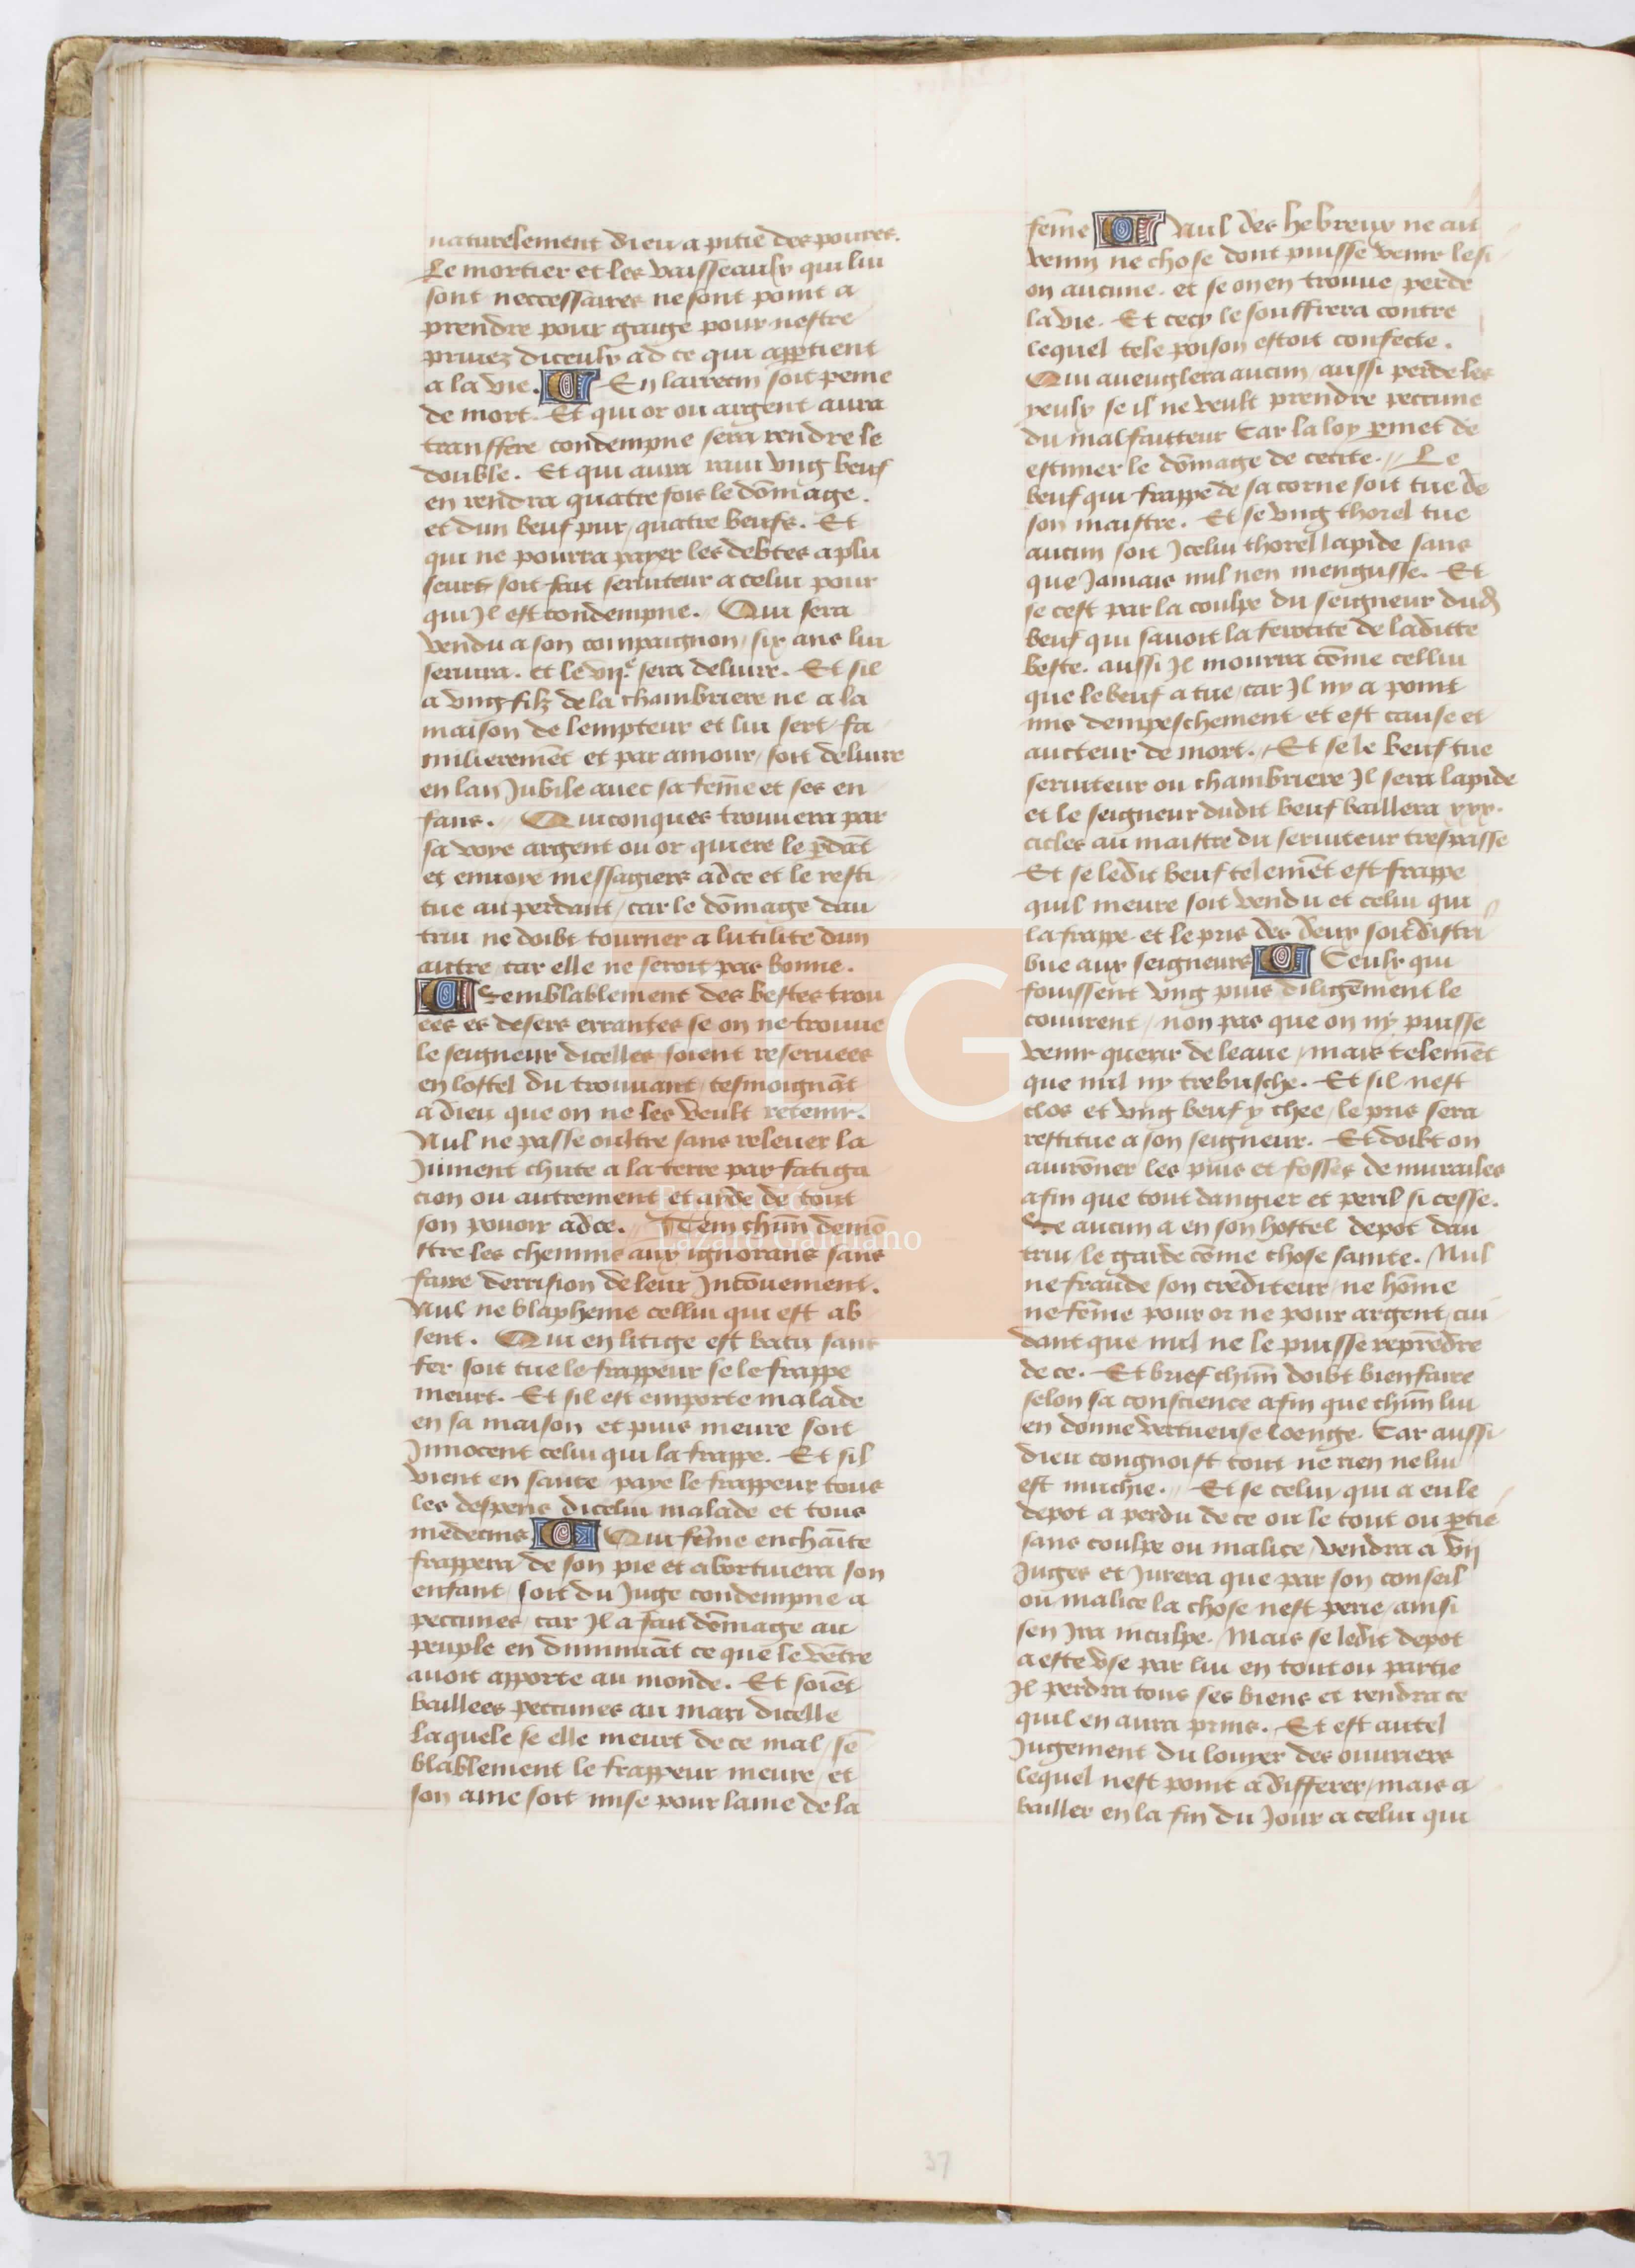 naturelement dieu a pitie des poures.
Le mortier et les vaisseaulx qui lui
sont neccessaires ne sont point a
prendre pour gaige pour nestre
priuez diceulx ad ce qui appartient
a la vie. En larrecin soit peine
de mort. Et qui or ou argent aura
transffere condempne sera rendre le
double. Et qui aura raui vng beuf
en rendra quatre fois le dõmage.
et dun beuf pur, quatre beufs. Et
qui ne pourra payer les debtes a plu
seurs soit fait seruiteur a celui pour
qui Jl est condempne. Qui sera
vendu a son compaignon, six ans lui
seruira. et le vij.e sera deliure. Et sil
a vng filz de la chambriere ne a la
maison de lempteur et lui sert fa
milieremẽt et par amour, soit deliure
en lan Jubile auec sa fem̃e et ses en
fans. Quiconques trouuera par
sa voye argent ou or quiere le p̃dãt
et enuoye messagiers adce et le resti
tue au perdant, car le dõmage dau
trui ne doibt tourner a lutilite dun
autre, car elle ne seroit pas bonne.
Semblablement des bestes trou
ees es desers errantes se on ne trouue
le seigneur dicelles soient reseruees
en lostel du trouuant, tesmoignãt
a dieu que on ne les veult retenir.
Nul ne passe oultre sans releuer la
Jument chute a la terre par fatiga
cion ou autrement et aide de tout
son pouoir adce. Jtem chũn demõ
stre les chemins aux ignorans sans
faire derrision de leur Jncõuement.
Nul ne blapheme cellui qui est ab
sent. Qui en litige est batu sans
fer soit tue le frappeur se le frappe
meurt. Et sil est emporte malade
en sa maison et puis meure soit
Jnnocent celui qui la frappe. Et sil
vient en sante paye le frappeur tous
les despens dicelui malade et tous
medecins Qui fem̃e enchaïte
frappera de son pie et abortiuera son
enfant, soit du Juge condempne a
peccunes, car Jl a fait dõmage au
peuple en diminuãt ce que le vẽtre
auoit apporte au monde. Et soiẽt
baillees peccunes au mari dicelle
Laquele se elle meurt de ce mal, sẽ
blablement le frappeur meure, et
son ame soit mise pour lame de la
fem̃e Nul des hebreux ne ait
venin ne chose dont puisse venir lesi
on aucune. et se on en trouue, perde
la vie. Et cecy le souffrera contre
lequel tele poison estoit confecte.
Qui aueuglera aucun, aussi perde les
yeulx se il ne veult prendre peccune
du malfaitteur Car la loy p̃met de
estimer le dõmage de cecite. Le
beuf qui frappe de sa corne soit tue de
son maistre. Et se vng thorel tue
aucun soit Jcelui thorel lapide sans
que Jamais nul nen mengusse. Et
se cest par la coulpe du seigneur dud
beuf qui sauoit la ferocite de laditte
beste. aussi Jl mourra cõme cellui
que le beuf a tue, car Jl ny a point
mis dempeschement et est cause et
aucteur de mort. Et se le beuf tue
seruiteur ou chambriere Jl sera lapide
et le seigneur dudit beuf baillera xxx.
cicles au maistre du seruiteur trespasse
Et se ledit beuf telemẽt est frappe
quil meure soit vendu et celui qui
la frappe et le pris des deux soit distri
bue aux seigneurs Ceulx qui
fouissent vng puis diligẽment le
couurent, non pas que on ny puisse
venir querir de leaue, mais telemẽt
que nul ny trebusche. Et sil nest
clos et vng beuf y chee, le pris sera
restitue a son seigneur. Et doibt on
auirõner les puis et fosses de murailes
afin que tout dangier et peril si cesse.
Se aucun a en son hostel depot dau
trui, le garde cõme chose sainte. Nul
ne fraude son crediteur, ne hõme
ne fẽme pour or ne pour argent, cui
dant que nul ne le puisse reprẽdre
de ce. Et brief chũn doibt bien faire
selon sa conscience afin que chũn lui
en donne vertueuse loenge. Car aussi
dieu congnoist tout ne rien ne lui
est muchie. Et se celuy qui a eu le
depot a perdu de ce ou le tout ou p̃tie
sans coulpe ou malice, vendra a vij
Juges et Jurera que par son conseil
ou malice la chose nest perie, ainsi
sen Jra inculpe. Mais se ledit depot
a este vse par lui en tout ou partie
Jl perdra tous ses biens et rendra ce
quil en aura prins. Et est autel
Jugement du louyer des ouuriers
lequel nest point a differer, mais a
bailler en la fin du Jour a celui qui
LG
Fundación
Lázaro Galdiano
37